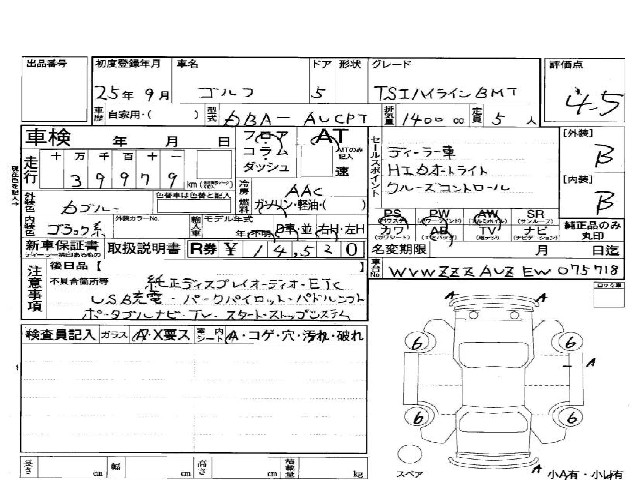 出品番号 初度登録年月 車名 ドア 形状 グレード 評価点
25年9月 ゴルフ 5 TSIハイラインBMT 4.5
車歴 自家用・( ) 型式 DBA-AUCPT 排気量 1400 cc 定員 5人
車検 年 月 日 フロア コラム ダッシュ AT 速
走行 十 万 千 百 十 一
39979 km
セールスポイント
ディーラー車
HIDオートライト
クルーズコントロール
[外装] B
[内装] B
冷房 AAC
燃料 ガソリン・軽油・( )
外装色 ブルー 色替車は色替と記入
内装色 ブラック系 外装カラーNo. 輸入車 モデル年式 年(不明) D車・並 右H・左H
PS PW AW SR
カワ AB TV ナビ 純正品のみ丸印
新車保証書 取扱説明書 R券 ¥14,520 名変期限 月 日迄
車台No. WVWZZZAUZEW075718
後日品【 】
注意事項 不具合箇所等 純正ディスプレイオーディオ・ETC
USB充電・パークパイロット・パドルシフト
ポータブルナビ・TV・スタートストップシステム
検査員記入 ガラス A・X要ス 室内シート A・コゲ・穴・汚れ・破れ
6 6 A
A
6 6
A
スペア 小A有・小U有
長さ cm 幅 cm 高さ cm 積載量 kg